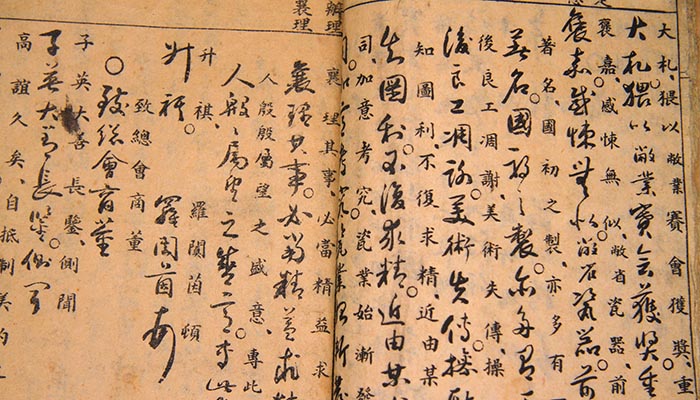 大札、猥以敝業賽會獲獎、重
大札、猥以敝業賽會獲獎重
褒嘉、感悚無似、敝省瓷器、前
褒嘉感悚無似敝省瓷器前
著名、國初之製、亦多有
著名國初之製。亦多有
後良工凋謝、美術失傳、操
後良工凋謝美術失傳。操
知圖利、不復求精、近由某
知圖利不復求精。近由某
司、加意考究、瓷業始漸發
司加意考究。瓷業始漸發
辦理
襄理
襄理其事、必當精益求
襄理其事。必當精益求
人殷殷屬望之盛意、專此
人殷殷屬望之盛意。專此
升祺、 羅閱茵頓
升祺。 羅閱茵頓
致總會商董
○致總會商董
子英大善長鑒、側聞
子英大善長鑒。側聞
高誼久矣、自抵制美約